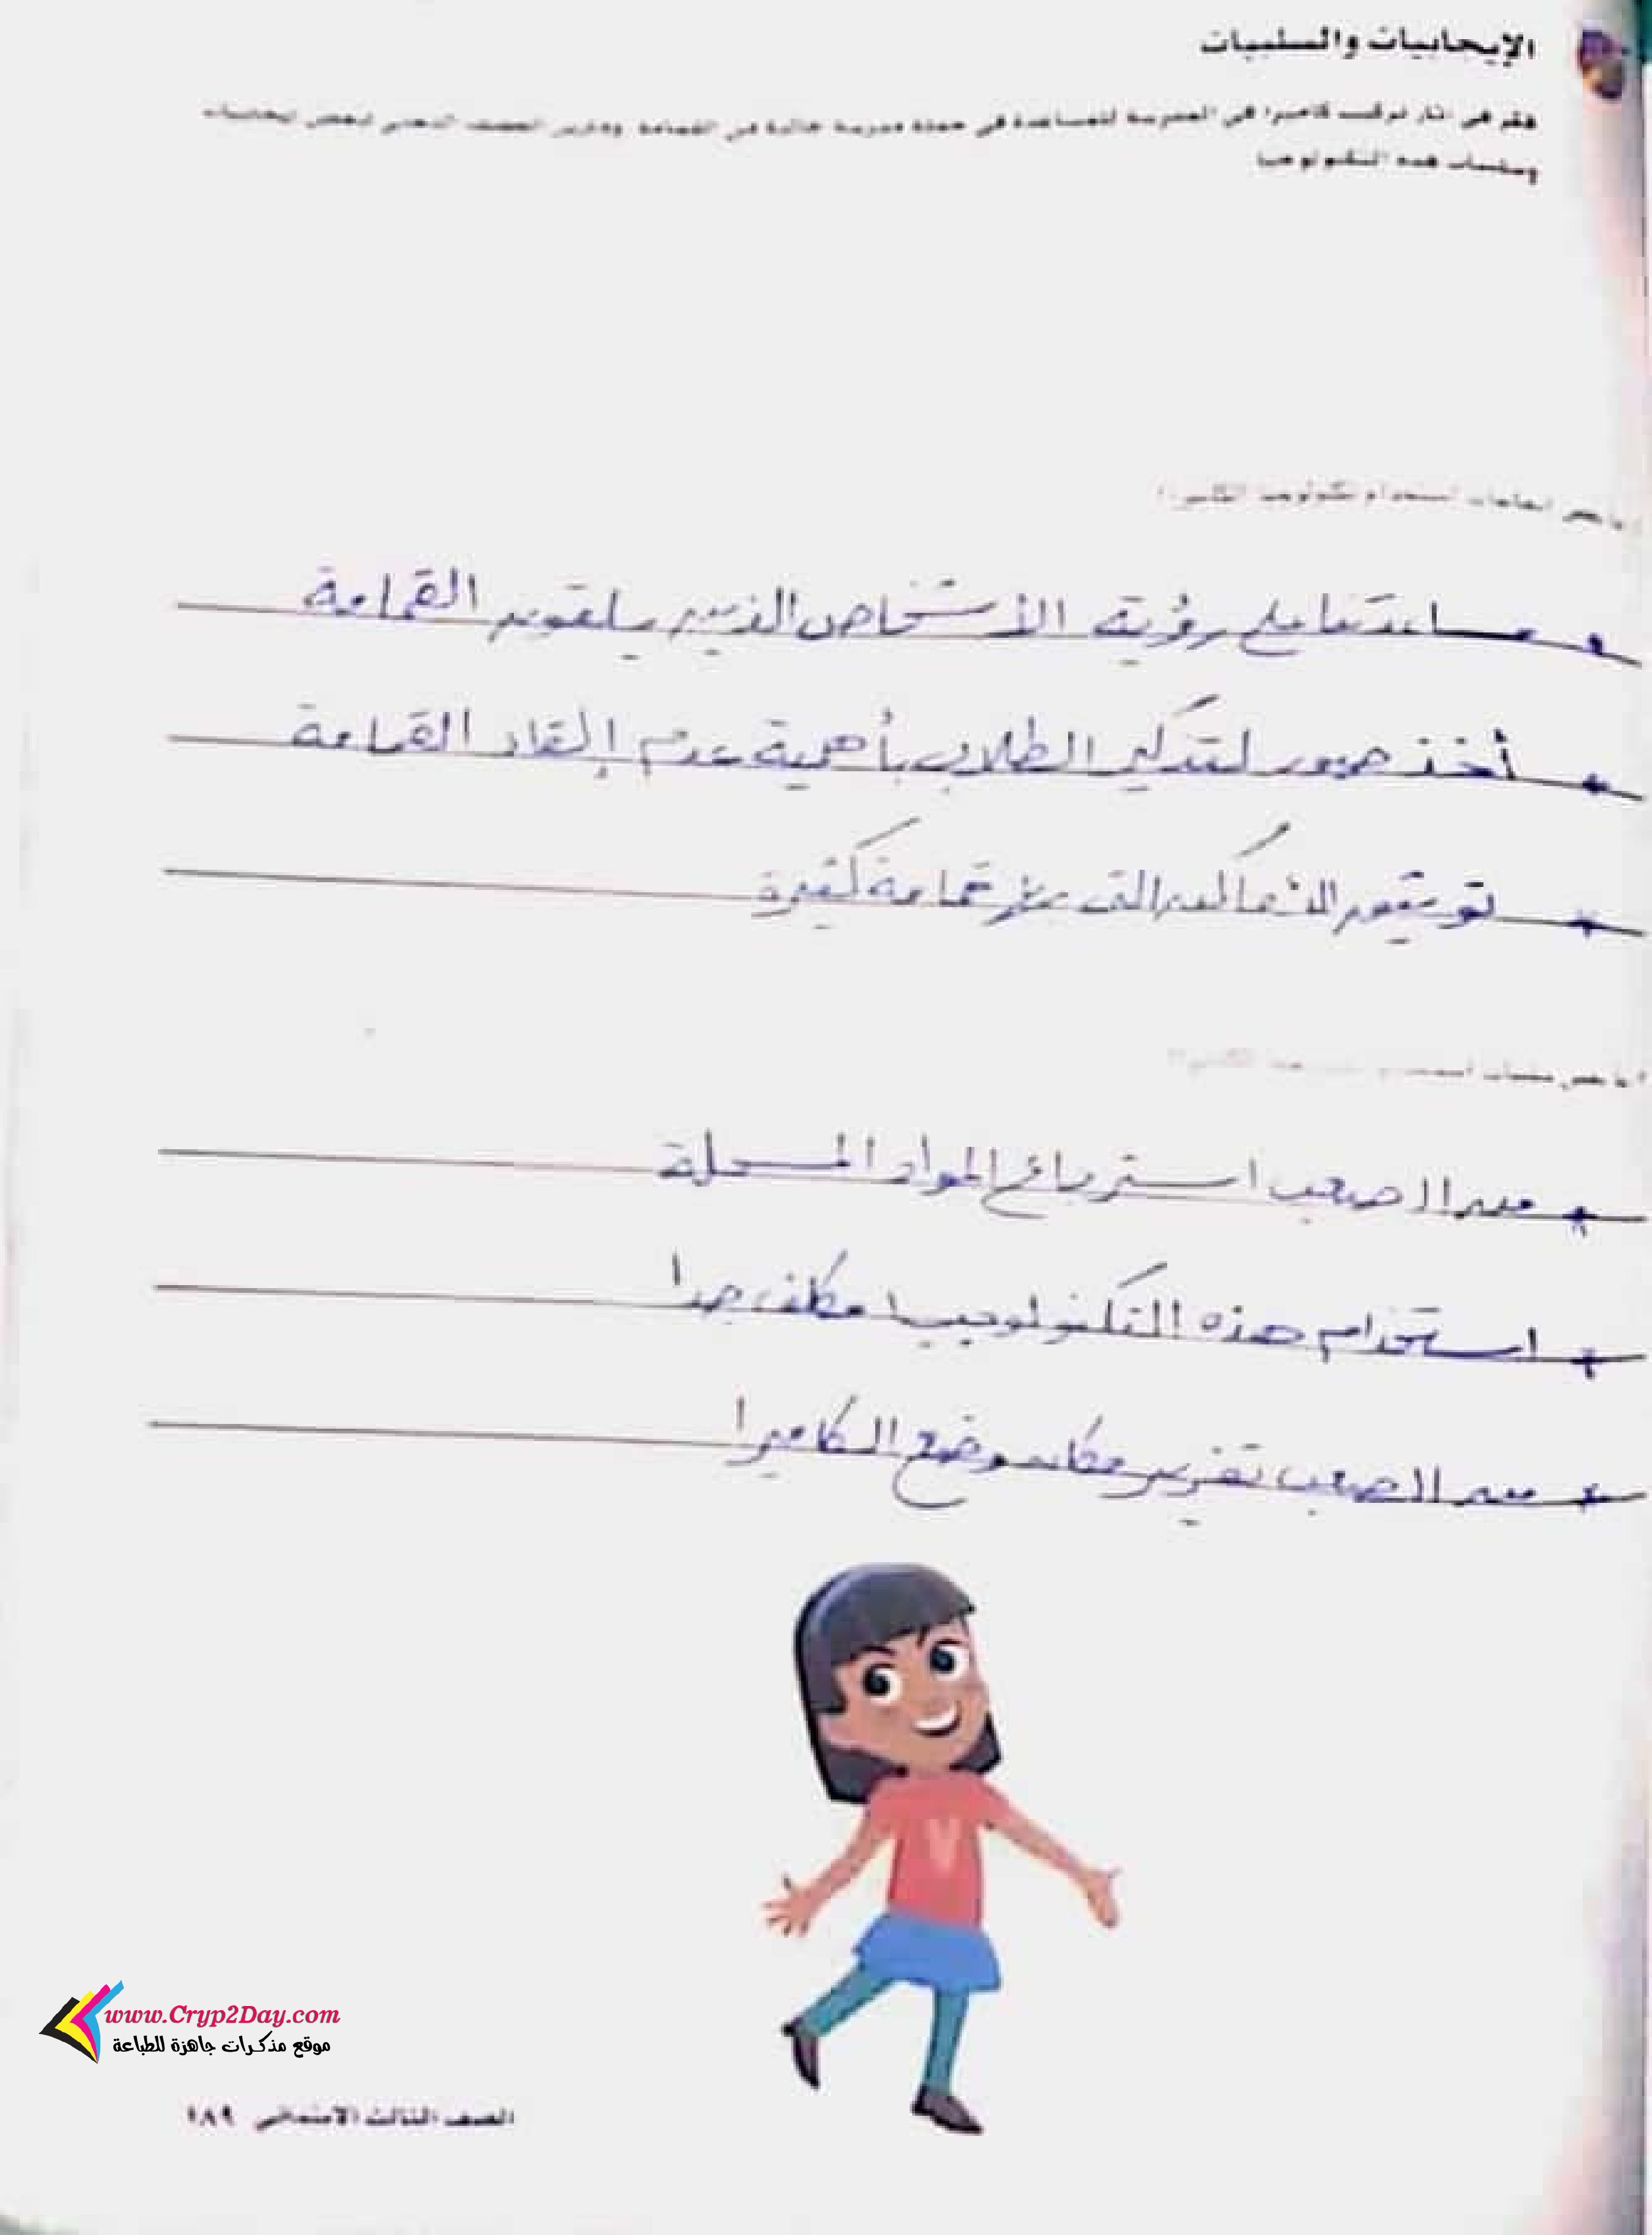 الإيجابيات والسلبيات
فكر في آثار تركيب كاميرا في المدرسة للمساعدة في حملة مدرسة خالية من القمامة
وسلبيات هذه التكنولوجيا
ما بعض إيجابيات استخدام تكنولوجيا الكاميرا؟
ساعدتنا على رؤية الأشخاص الذين يلقون القمامة
أخذ صور لتذكير الطلاب بأهمية عدم إلقاء القمامة
الأماكن التي بها قمامة كثيرة
ما بعض سلبيات استخدام
من الصعب استرجاع المواد المسجلة
استخدام هذه التكنولوجيا مكلف جدا
من الصعب تقرير مكان وضع الكاميرا
www.Cryp2Day.com
موقع مذكرات جاهزة للطباعة
الصف الثالث الابتدائي ١٨٩